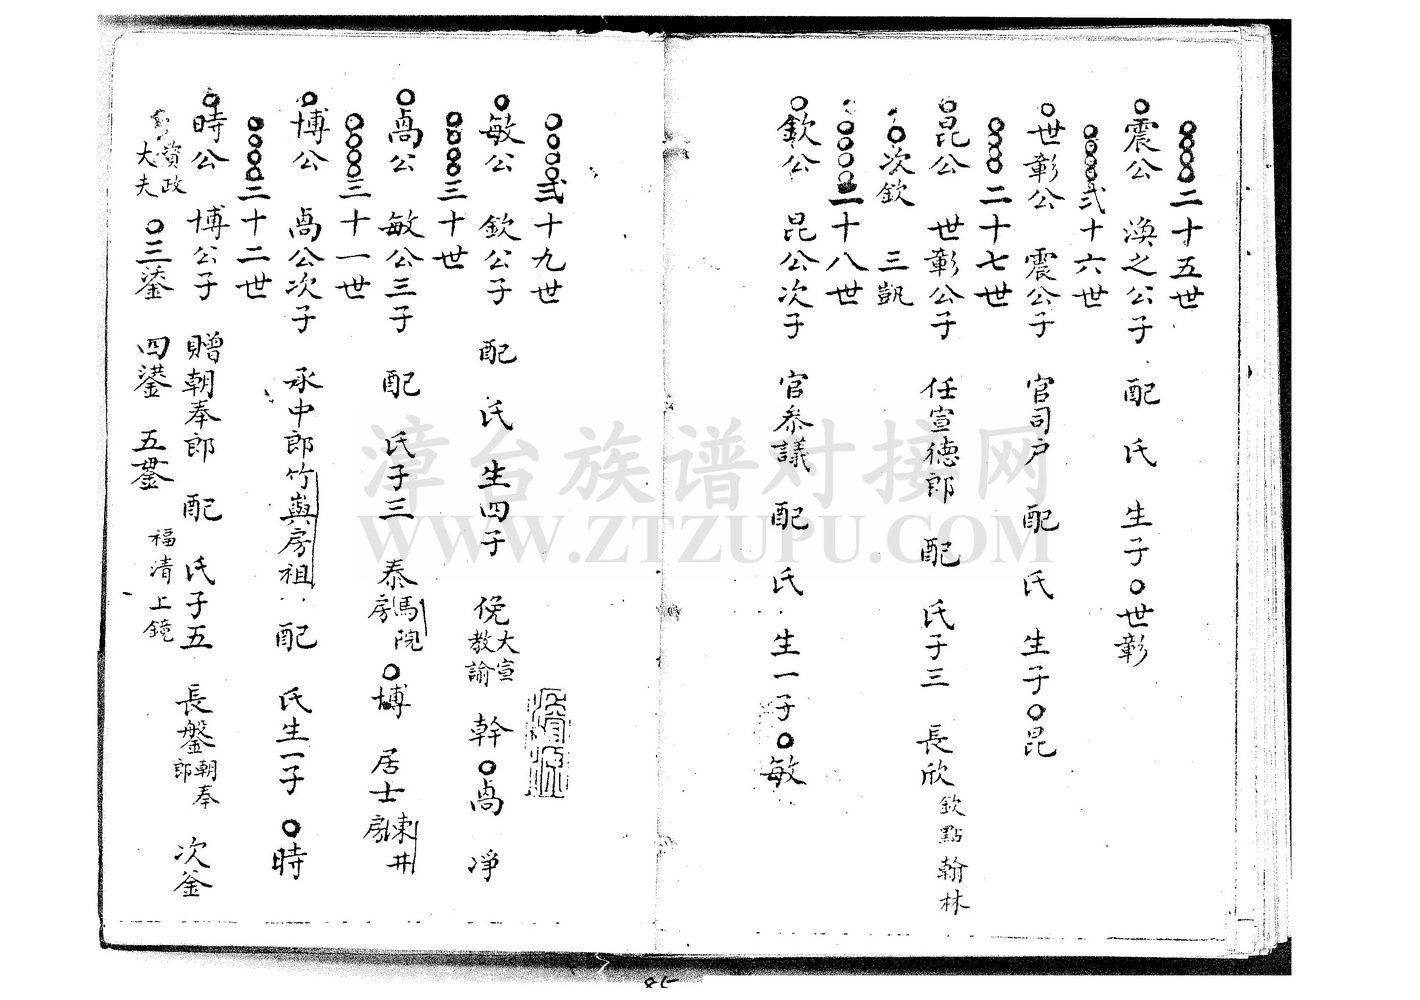 二十五世
震公 渙之公子 配 氏 生子 世彰
弍十六世
世彰公 震公子 官司户 配 氏 生子 昆
二十七世
昆公 世彰公子 任宣德郎 配 氏子三 長欣 欽點翰林
次欽 三凱
二十八世
欽公 昆公次子 官叅議 配 氏 生一子 敏
弍十九世
敏公 欽公子 配 氏 生四子 俛 大宣教諭 幹 卨 凈
三十世
卨公 敏公三子 配 氏子三 泰 馬院房 博 居士 東井房
三十一世
博公 卨公次子 承中郎竹與房祖 配 氏生一子 時
三十二世
時公 博公子 贈朝奉郎 配 氏子五 長鎜 朝奉郎 次釡
資政大夫 三鋈 四 五 福清上鏡
漳台族谱对接网
WWW.ZTZUPU.COM
85